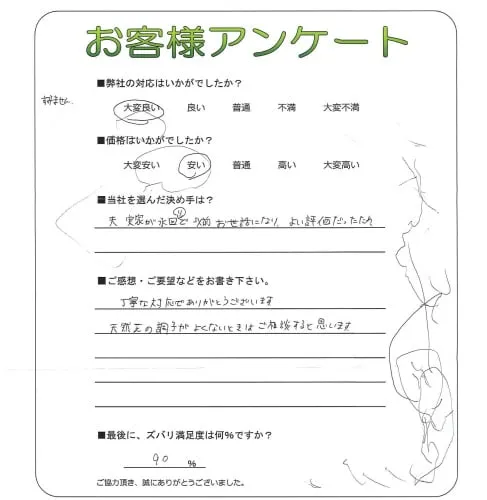 お客様アンケート
■弊社の対応はいかがでしたか？
すみません。
大変良い 良い 普通 不満 大変不満
■価格はいかがでしたか？
大変安い 安い 普通 高い 大変高い
■当社を選んだ決め手は？
夫 実家が 水回で 以前 お世話になり、よい評価だったため
■ご感想・ご要望などをお書き下さい。
丁寧な対応でありがとうございます
の調子が よくないときは ご相談すると思います
■最後に、ズバリ満足度は何%ですか？
90 %
ご協力頂き、誠にありがとうございました。